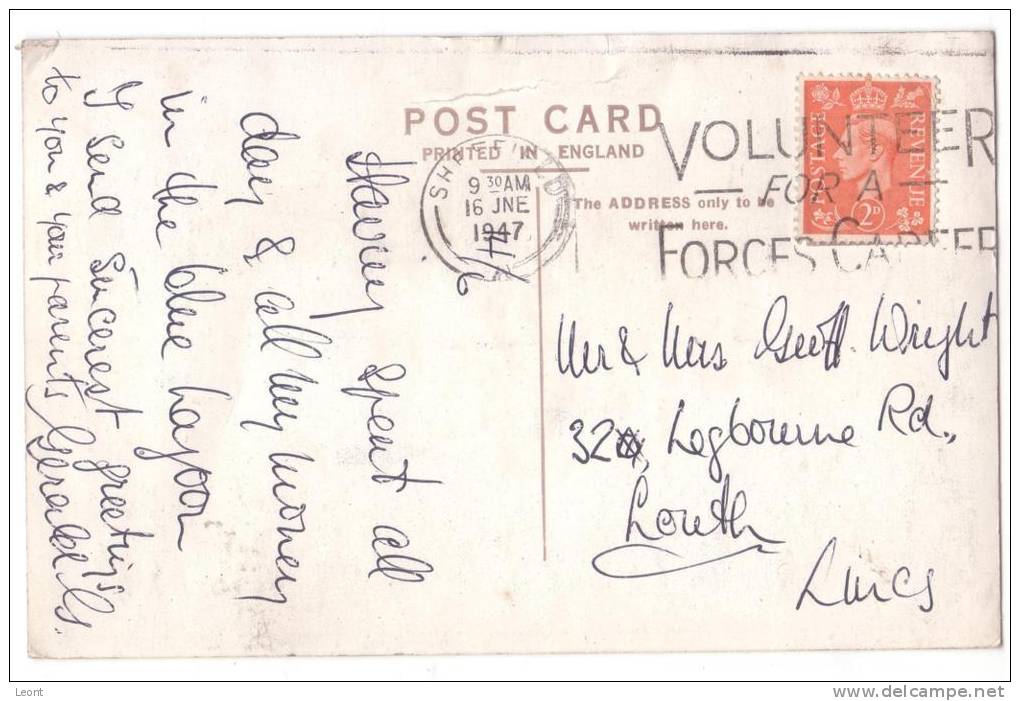 POST CARD
PRINTED IN ENGLAND
The ADDRESS only to be
written here.
SHEFFIELD
9 30 AM
16 JNE
1947
VOLUNTEER
FOR A
FORCES CAREER
POSTAGE
REVENUE
2D
Having spent all
day & all my money
in the blue lagoon
I send Sincerest greetings
to you & your parents
Mr & Mrs Geoff. Wright
32, Legbourne Rd.,
Louth
Lincs
Leont
www.delcampe.net